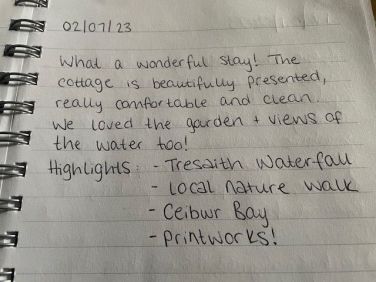 02/07/23
What a wonderful stay! The
cottage is beautifully presented,
really comfortable and clean.
We loved the garden + views of
the water too!
Highlights: - Tresaith Waterfall
- Local nature walk
- Ceibwr Bay
- Printworks!